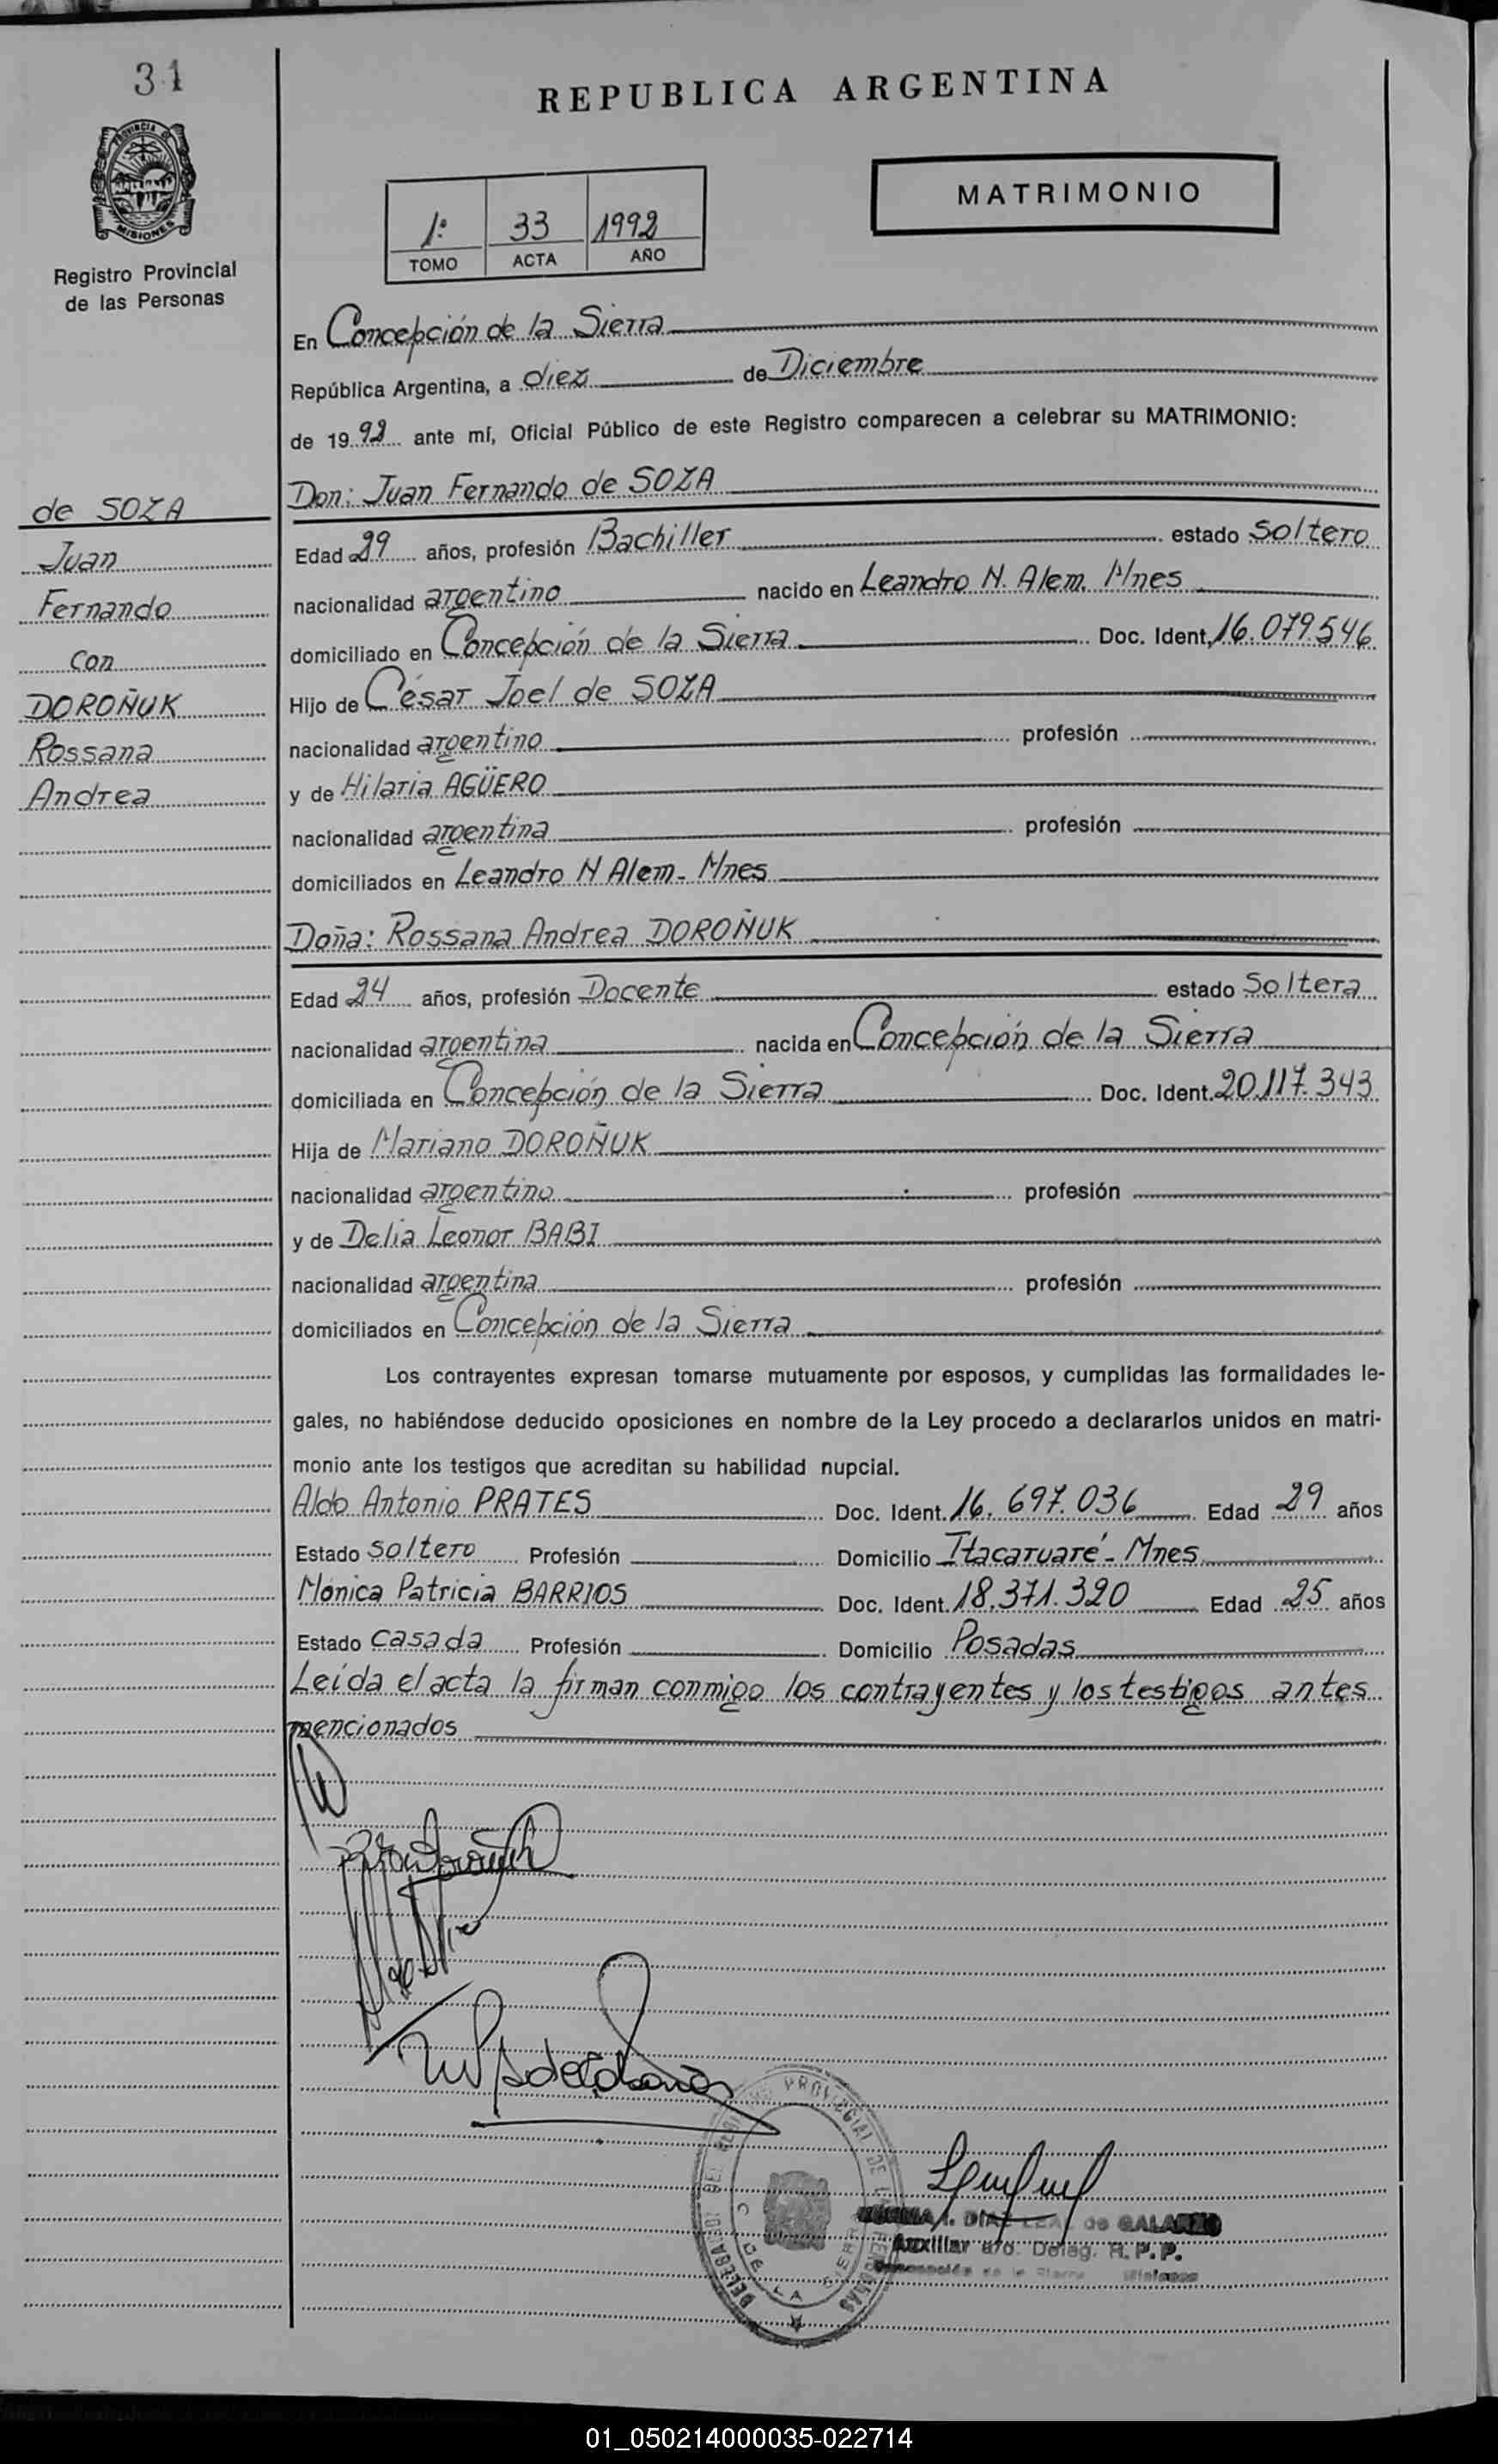 31
REPUBLICA ARGENTINA
PROVINCIA D
MISIONES
Registro Provincial
de las Personas
1º 33 1992
TOMO ACTA AÑO
MATRIMONIO
En Concepción de la Sierra
República Argentina, a diez de Diciembre
de 1992 ante mí, Oficial Público de este Registro comparecen a celebrar su MATRIMONIO:
de SOZA
Juan
Fernando
Con
DOROÑUK
Rossana
Andrea
Don: Juan Fernando de SOZA
Edad 29 años, profesión Bachiller estado Soltero
nacionalidad argentino nacido en Leandro N. Alem. Mnes
domiciliado en Concepción de la Sierra Doc. Ident. 16.079.546
Hijo de César Joel de SOZA
nacionalidad argentino profesión
y de Hilaria AGÜERO
nacionalidad argentina profesión
domiciliados en Leandro N Alem - Mnes
Doña: Rossana Andrea DOROÑUK
Edad 24 años, profesión Docente estado Soltera
nacionalidad argentina nacida en Concepción de la Sierra
domiciliada en Concepción de la Sierra Doc. Ident. 20.117.343
Hija de Mariano DOROÑUK
nacionalidad argentino profesión
y de Delia Leonor BABI
nacionalidad argentina profesión
domiciliados en Concepción de la Sierra
Los contrayentes expresan tomarse mutuamente por esposos, y cumplidas las formalidades le-
gales, no habiéndose deducido oposiciones en nombre de la Ley procedo a declararlos unidos en matri-
monio ante los testigos que acreditan su habilidad nupcial.
Aldo Antonio PRATES Doc. Ident. 16.697.036 Edad 29 años
Estado Soltero Profesión Domicilio Itacaruaré - Mnes
Mónica Patricia BARRIOS Doc. Ident. 18.371.320 Edad 25 años
Estado Casada Profesión Domicilio Posadas
Leída el acta la firman conmigo los contrayentes y los testigos antes
mencionados
PROVINCIAL DE LA
DE LA
DIAZ LEAL de GALARZO
Auxiliar a/c. Deleg. R. P. P.
Concepción de la Sierra Misiones
01_050214000035-022714